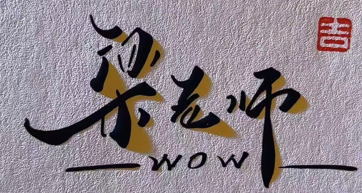 梁老师
wow
吉